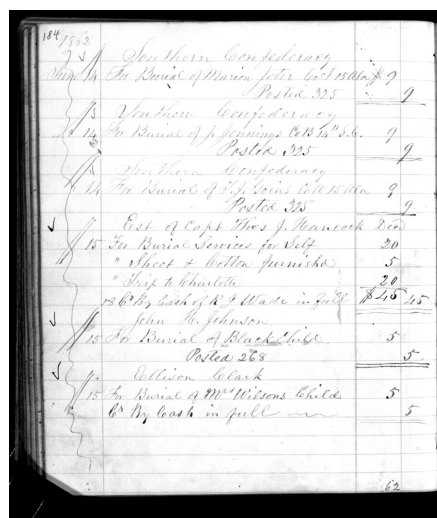 184 1862
Southern Confederacy
14 For Burial of Marion Jeter Co 15 Ala $ 9
Posted 325 9
Southern Confederacy
14 For Burial of J. Jennings Co B 14th S.C. 9
Posted 325 9
Southern Confederacy
14 For Burial of Goins Co A 15 Ala 9
Posted 325 9
Est of Capt Thos J. Hancock
15 For Burial Services for Self 20
" Sheet & Cotton furnishd 5
" Trip to Charlotte 20
By Cash of R J Wade in full $45 45
John Johnson
15 For Burial of Black Child 5
Posted 268 5
Ellison Clark
15 For Burial of Mrs Wilsons Child 5
Cr By Cash in full 5
62